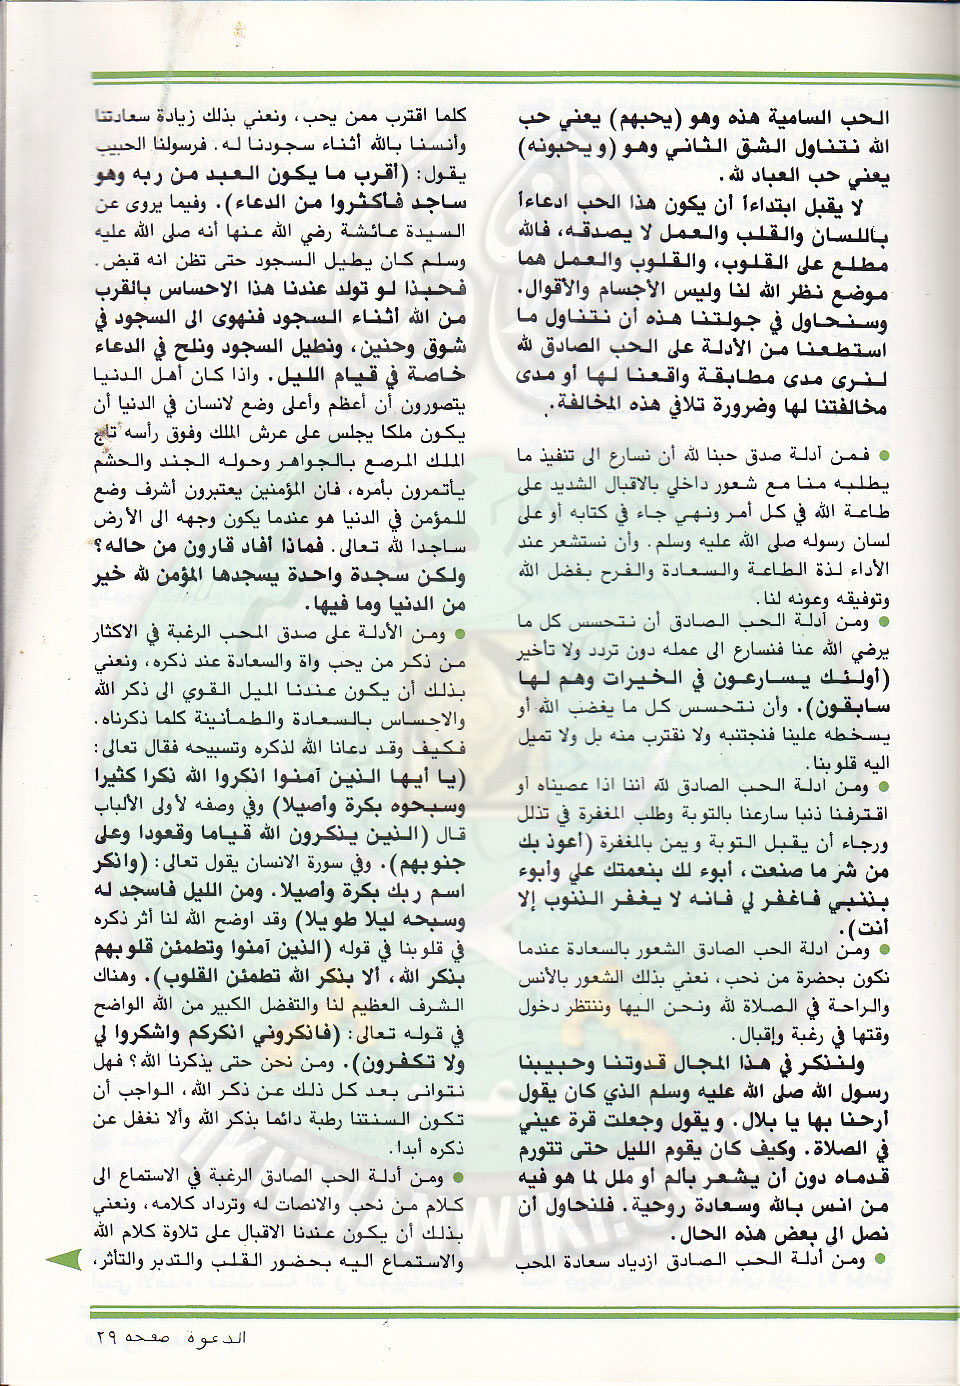 الحب السامية هذه وهو (يحبهم) يعني حب
الله نتناول الشق الثاني وهو (ويحبونه)
يعني حب العباد لله.
لا يقبل ابتداءاً أن يكون هذا الحب ادعاءاً
باللسان والقلب والعمل لا يصدقه، فالله
مطلع على القلوب، والقلوب والعمل هما
موضع نظر الله لنا وليس الأجسام والأقوال.
وسنحاول في جولتنا هذه أن نتناول ما
استطعنا من الأدلة على الحب الصادق لله
لنرى مدى مطابقة واقعنا لها أو مدى
مخالفتنا لها وضرورة تلافي هذه المخالفة.
● فمن أدلة صدق حبنا لله أن نسارع الى تنفيذ ما
يطلبه منا مع شعور داخلي بالاقبال الشديد على
طاعة الله في كل أمر ونهي جاء في كتابه أو على
لسان رسوله صلى الله عليه وسلم. وأن نستشعر عند
الأداء لذة الطاعة والسعادة والفرح بفضل الله
وتوفيقه وعونه لنا.
● ومن أدلة الحب الصادق أن نتحسس كل ما
يرضي الله عنا فنسارع الى عمله دون تردد ولا تأخير
(أولئك يسارعون في الخيرات وهم لها
سابقون). وأن نتحسس كل ما يغضب الله أو
يسخطه علينا فنجتنبه ولا نقترب منه بل ولا تميل
اليه قلوبنا.
● ومن ادلة الحب الصادق لله أننا اذا عصيناه أو
اقترفنا ذنبا سارعنا بالتوبة وطلب المغفرة في تذلل
ورجاء أن يقبل التوبة ويمن بالمغفرة (أعوذ بك
من شر ما صنعت، أبوء لك بنعمتك علي وأبوء
بذنبي فاغفر لي فانه لا يغفر الذنوب إلا
أنت).
● ومن ادلة الحب الصادق الشعور بالسعادة عندما
نكون بحضرة من نحب، نعني بذلك الشعور بالأنس
والراحة في الصلاة لله ونحن اليها وننتظر دخول
وقتها في رغبة وإقبال.
ولنذكر في هذا المجال قدوتنا وحبيبنا
رسول الله صلى الله عليه وسلم الذي كان يقول
أرحنا بها يا بلال. ويقول وجعلت قرة عيني
في الصلاة. وكيف كان يقوم الليل حتى تتورم
قدماه دون أن يشعر بألم أو ملل لما هو فيه
من انس بالله وسعادة روحية. فلنحاول أن
نصل الى بعض هذه الحال.
● ومن أدلة الحب الصادق ازدياد سعادة المحب
كلما اقترب ممن يحب، ونعني بذلك زيادة سعادتنا
وأنسنا بالله أثناء سجودنا له. فرسولنا الحبيب
يقول: (أقرب ما يكون العبد من ربه وهو
ساجد فأكثروا من الدعاء). وفيما يروى عن
السيدة عائشة رضي الله عنها أنه صلى الله عليه
وسلم كان يطيل السجود حتى تظن انه قبض.
فحبذا لو تولد عندنا هذا الاحساس بالقرب
من الله أثناء السجود فنهوى الى السجود في
شوق وحنين، ونطيل السجود ونلح في الدعاء
خاصة في قيام الليل. واذا كان أهل الدنيا
يتصورون أن أعظم وأعلى وضع لانسان في الدنيا أن
يكون ملكا يجلس على عرش الملك وفوق رأسه تاج
الملك المرصع بالجواهر وحوله الجند والحشم
يأتمرون بأمره، فان المؤمنين يعتبرون أشرف وضع
للمؤمن في الدنيا هو عندما يكون وجهه الى الأرض
ساجدا لله تعالى. فماذا أفاد قارون من حاله؟
ولكن سجدة واحدة يسجدها المؤمن لله خير
من الدنيا وما فيها.
● ومن الأدلة على صدق المحب الرغبة في الاكثار
من ذكر من يحب واة والسعادة عند ذكره، ونعني
بذلك أن يكون عندنا الميل القوي الى ذكر الله
والاحساس بالسعادة والطمأنينة كلما ذكرناه.
فكيف وقد دعانا الله لذكره وتسبيحه فقال تعالى:
(يا أيها الذين آمنوا اذكروا الله ذكرا كثيرا
وسبحوه بكرة وأصيلا) وفي وصفه لأولى الألباب
قال (الذين يذكرون الله قياما وقعودا وعلى
جنوبهم). وفي سورة الانسان يقول تعالى: (واذكر
اسم ربك بكرة وأصيلا. ومن الليل فاسجد له
وسبحه ليلا طويلا) وقد اوضح الله لنا أثر ذكره
في قلوبنا في قوله (الذين آمنوا وتطمئن قلوبهم
بذكر الله، ألا بذكر الله تطمئن القلوب). وهناك
الشرف العظيم لنا والتفضل الكبير من الله الواضح
في قوله تعالى: (فاذكروني اذكركم واشكروا لي
ولا تكفرون). ومن نحن حتى يذكرنا الله؟ فهل
نتوانى بعد كل ذلك عن ذكر الله، الواجب أن
تكون السنتنا رطبة دائما بذكر الله وألا نغفل عن
ذكره أبدا.
● ومن أدلة الحب الصادق الرغبة في الاستماع الى
كلام من نحب والانصات له وترداد كلامه، ونعني
بذلك أن يكون عندنا الاقبال على تلاوة كلام الله
والاستماع اليه بحضور القلب والتدبر والتأثر،
الدعوة صفحه ٢٩